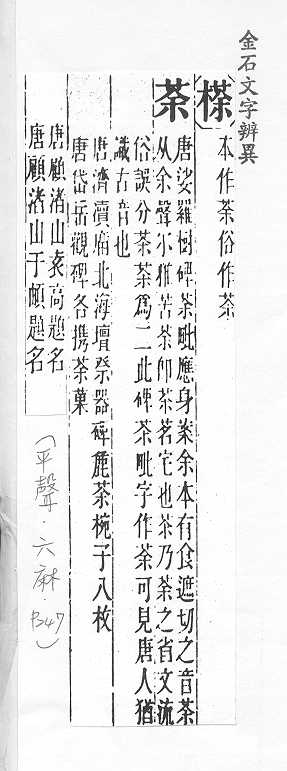 金石文字辨異
本作荼俗作茶
荼
唐娑羅樹碑荼毗應身案余本有食遮切之音荼
从余聲尒雅苦荼即茶茗它也茶乃荼之省文流
俗誤分茶荼爲二此碑茶毗字作荼可見唐人猶
識古音也
唐濟瀆廟北海壇祭器碑麁茶椀子八枚
唐岱岳觀碑各携荼菓
唐顧渚山袁高題名
唐顧渚山于頔題名
(平聲.六麻.P347)